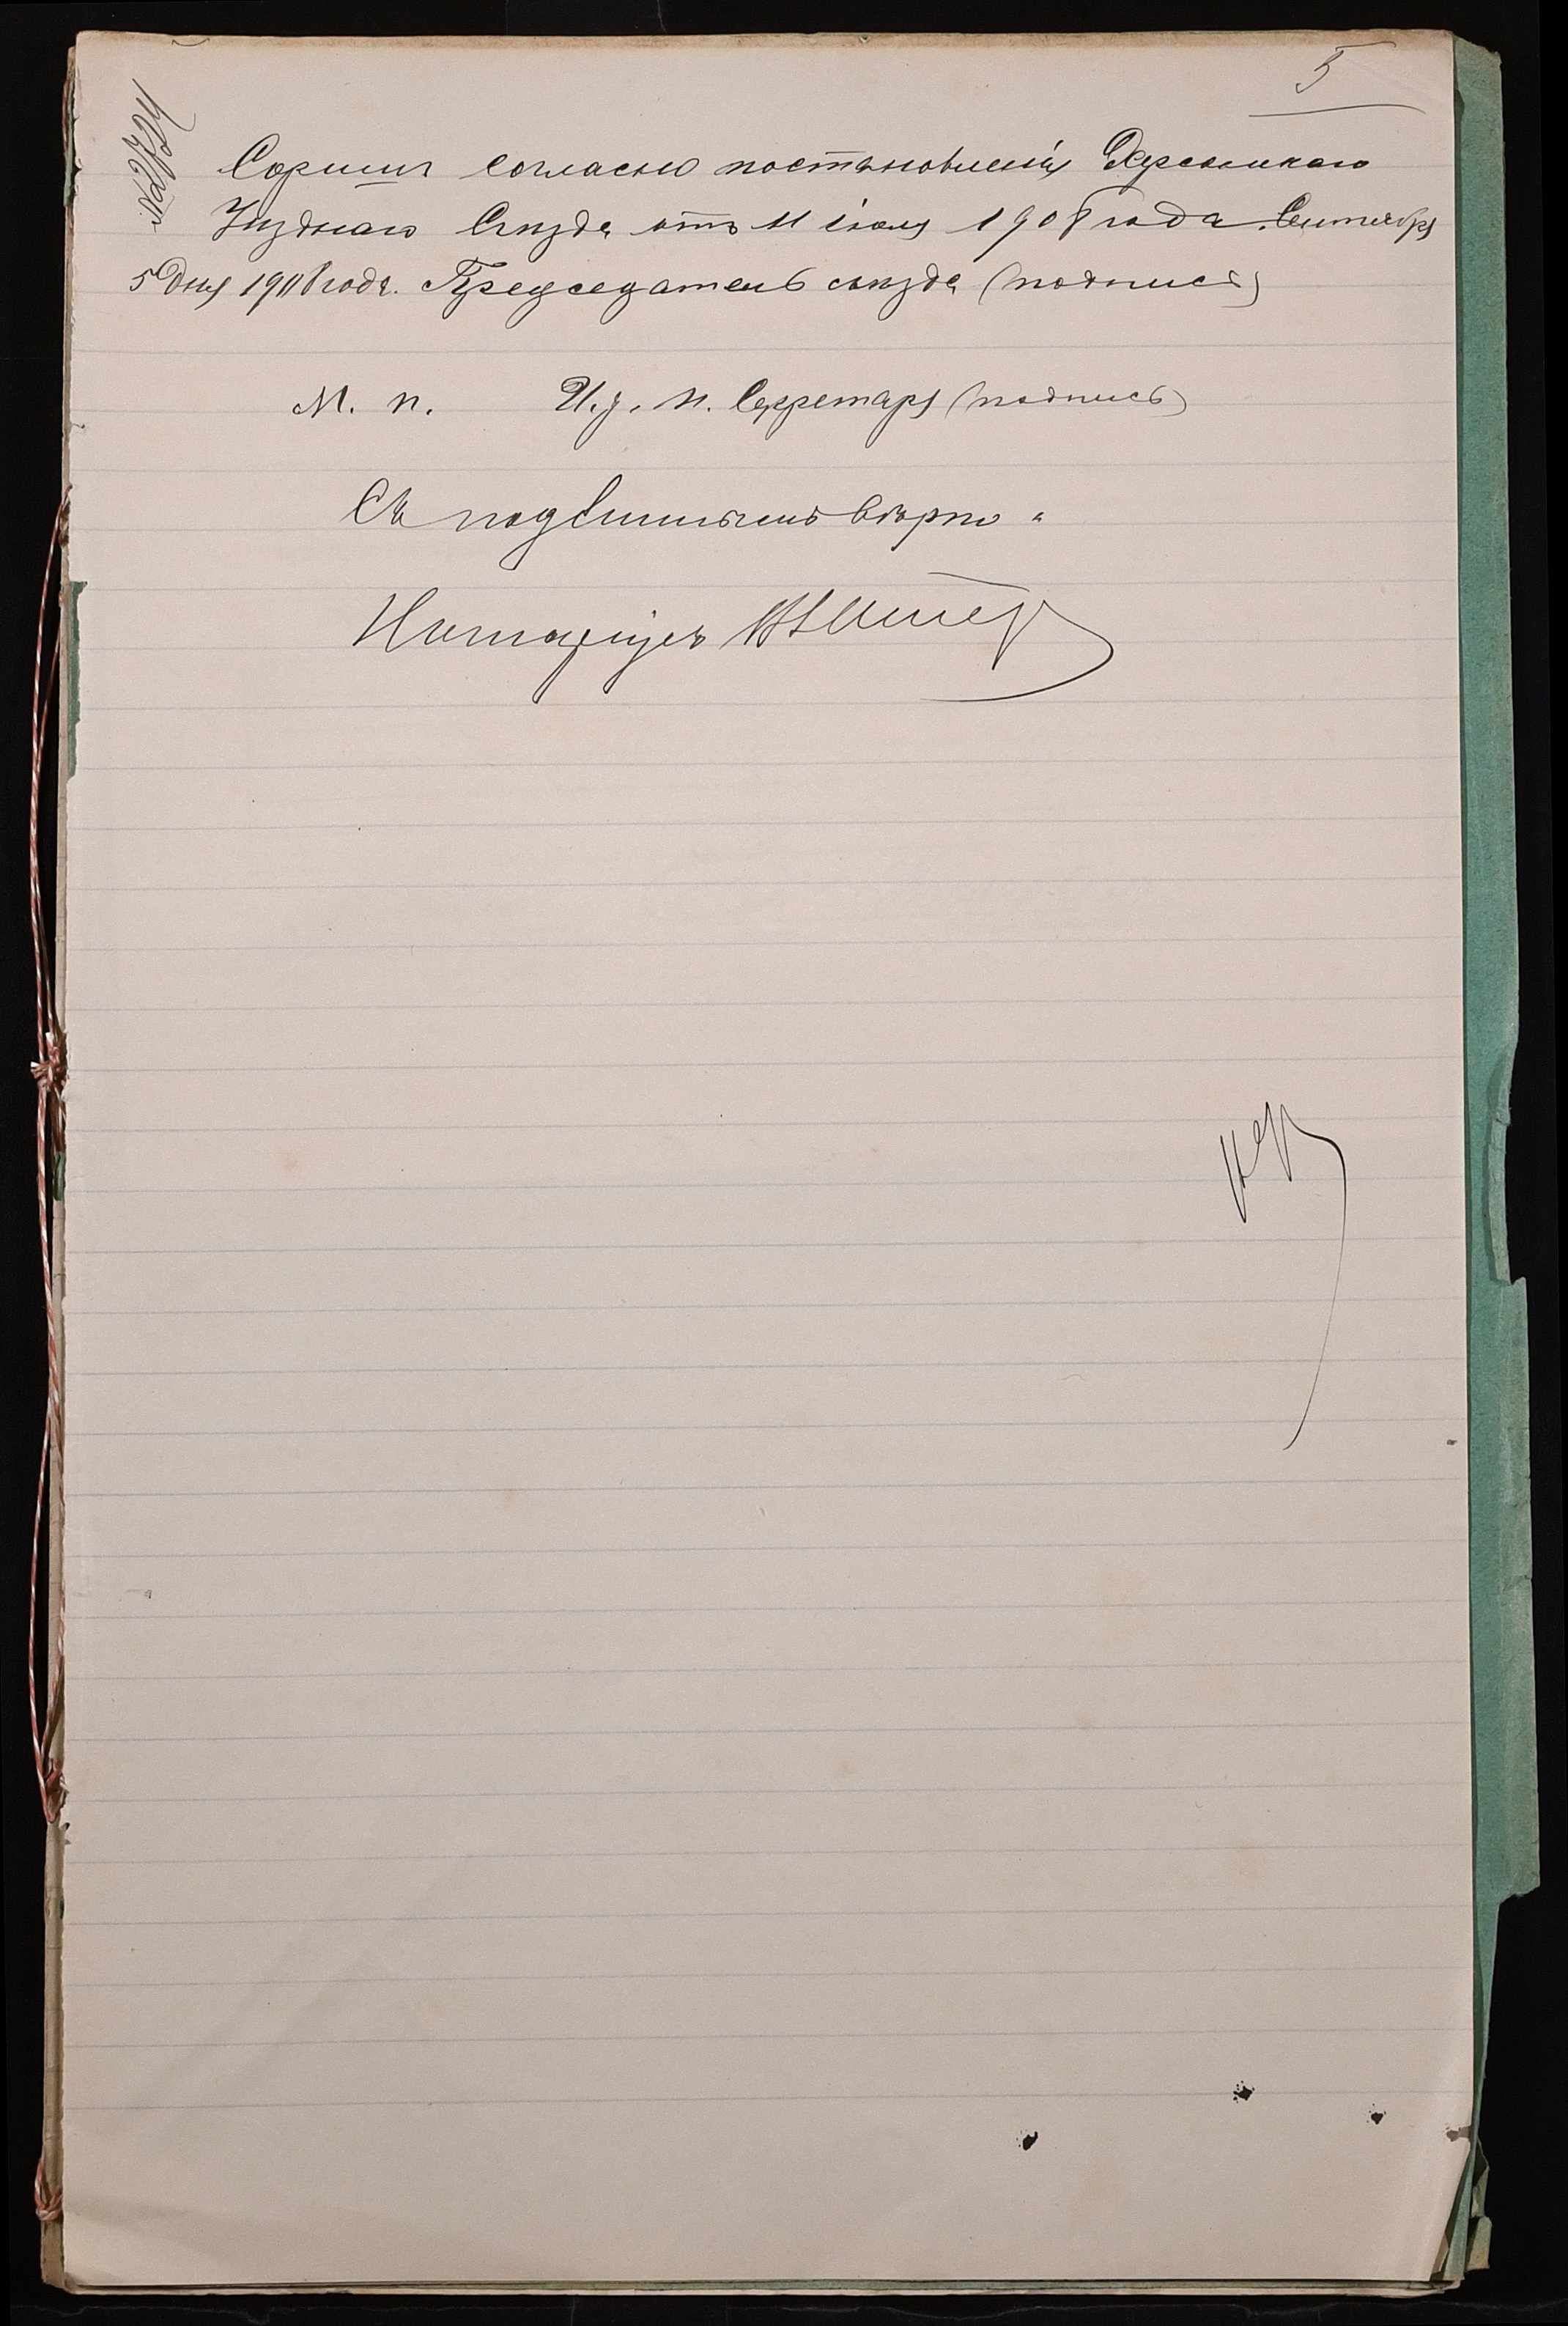 5
№ 2724
согласно постановленія Херсонскаго
Уѣзднаго Съѣзда отъ 11 іюля 1908 года. Сентября
5 дня 1908 года. Предсѣдатель съѣзда (подпись)
М. п. И. д. п. Секретаря (подпись)
Съ подлиннымъ вѣрно.
Нотаріусъ